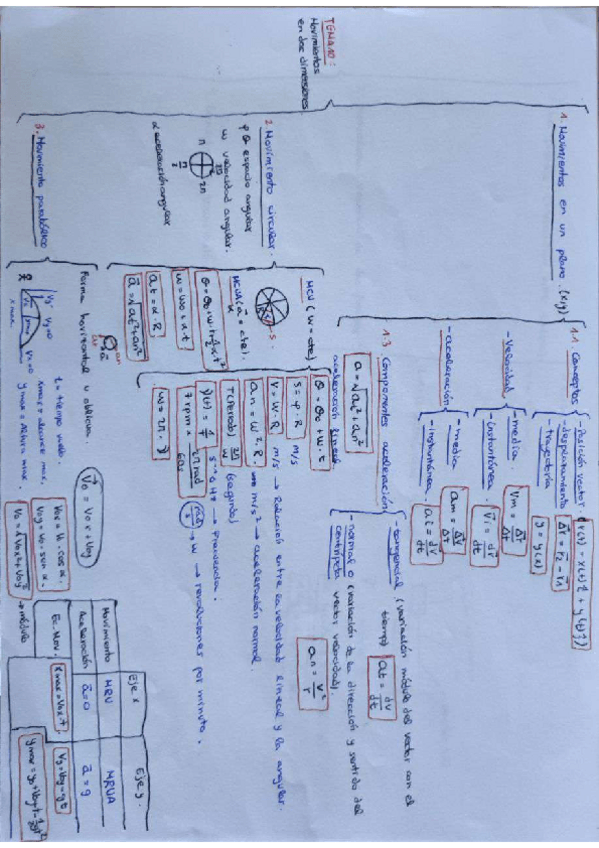 TEMA 10:
Movimientos
en dos dimensiones
1. Movimientos en un plano. (x,y)
1.1 Conceptos
- Posición vector r(t) = x(t)î + y(t)ĵ
- desplazamiento Δr = r2 - r1
- trayectoria y = y(x)
- Velocidad
- media Vm = Δr/Δt
- instantánea. Vi = dr/dt
- aceleración
- media am = Δv/Δt
- instantánea. ai = dv/dt
1.3 Componentes aceleración
a = √at²+an²
aceleración lineal.
- tangencial (variación módulo del vector con el
tiempo) at = dv/dt
- normal o (variación de la dirección y sentido del
centrípeta vector velocidad).
an = v²/r
2. Movimiento circular.
φ θ espacio angular
ω velocidad angular.
α aceleración angular
π
2π
MCU (ω = cte)
θ = θo + ω·t
s = φ·R m
V = ω·R m/s → Relación entre la velocidad lineal y la angular.
an = ω²·R → m/s² → aceleración normal.
T(Periodo) 2π/ω (segundos)
f(ν) = 1/T s⁻¹ o Hz → Frecuencia.
rpm x 2π rad/60s → ω → revoluciones por minuto.
ω = 2π·f
MCUA (α = cte).
θ = θo+ωo·t+½αt²
ω = ωo+α·t
at = α·R
a = √at²+an²
3. Movimiento parabólico
Forma horizontal u oblicua.
Vo = Vox + Voy
x max.
t = tiempo vuelo.
xmax = alcance max.
ymax = Altura max.
Vox = Vo·cosα.
Voy = Vo·senα.
Vo = √Vox²+Voy² → módulo
Eje x
Eje y.
Movimiento MRU MRUA
Aceleración a=0 a = g
Ec. Mov. xmax = Vox·t. Vy = Voy-gt
ymax = yo+Voyt-½gt²